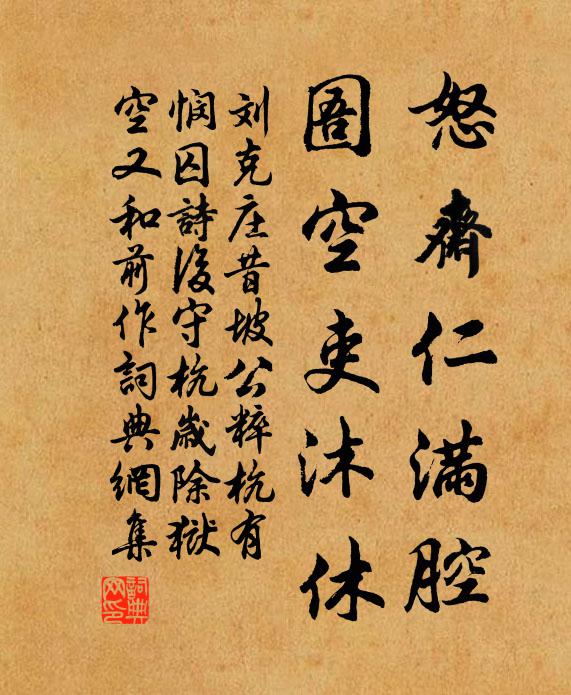 怒齋仁滿腔
圄空吏沐休
刘克庄昔坡公粹杭有
悯囚詩後守杭歲除獄
空又和前作詞典網集
詞典网印